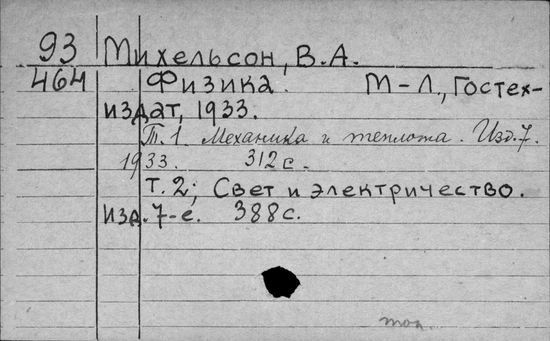 93 Михельсон, В.А.
464 Физика. М-Л., Гостех-
издат, 1933.
Т. 1. Механика и теплота. Изд. 7.
1933. 312 с.
Т. 2; Свет и электричество.
Изд. 7-е. 388 с.